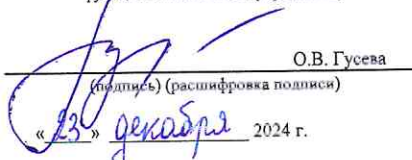 О.В. Гусева
(подпись) (расшифровка подписи)
« 23 » декабря 2024 г.